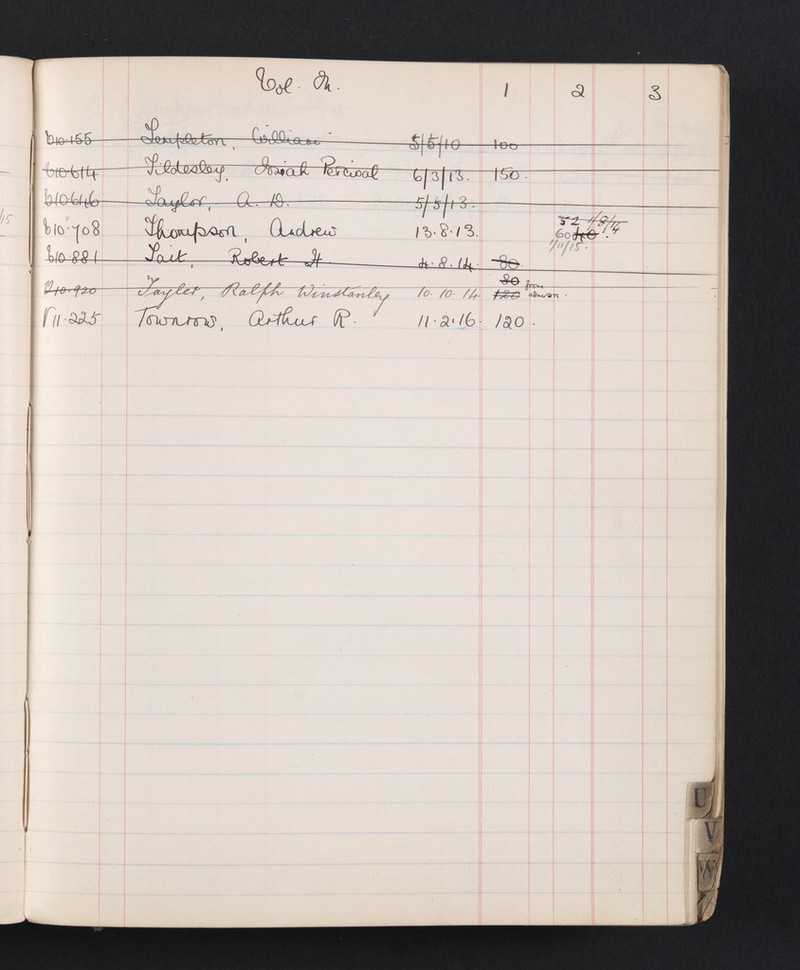 Vol. M. 1 2 3
b10155 Templeton, William 5/5/10 100
b10614 Tildesley, Josiah Percival 6/3/13. 150.
b10646 Taylor, A. D. 5/5/13.
b10708 Thompson, Andrew 13.8.13. 52 1/8/14
60 40.
1/11/15.
b10881 Tait, Robert H. 4.8.14. 80
80 from
10.920 Tayler, Ralph Winstanley 10.10.14 120
11.225 Townrow, Arthur R. 11.2.16. 120.
U
V
W